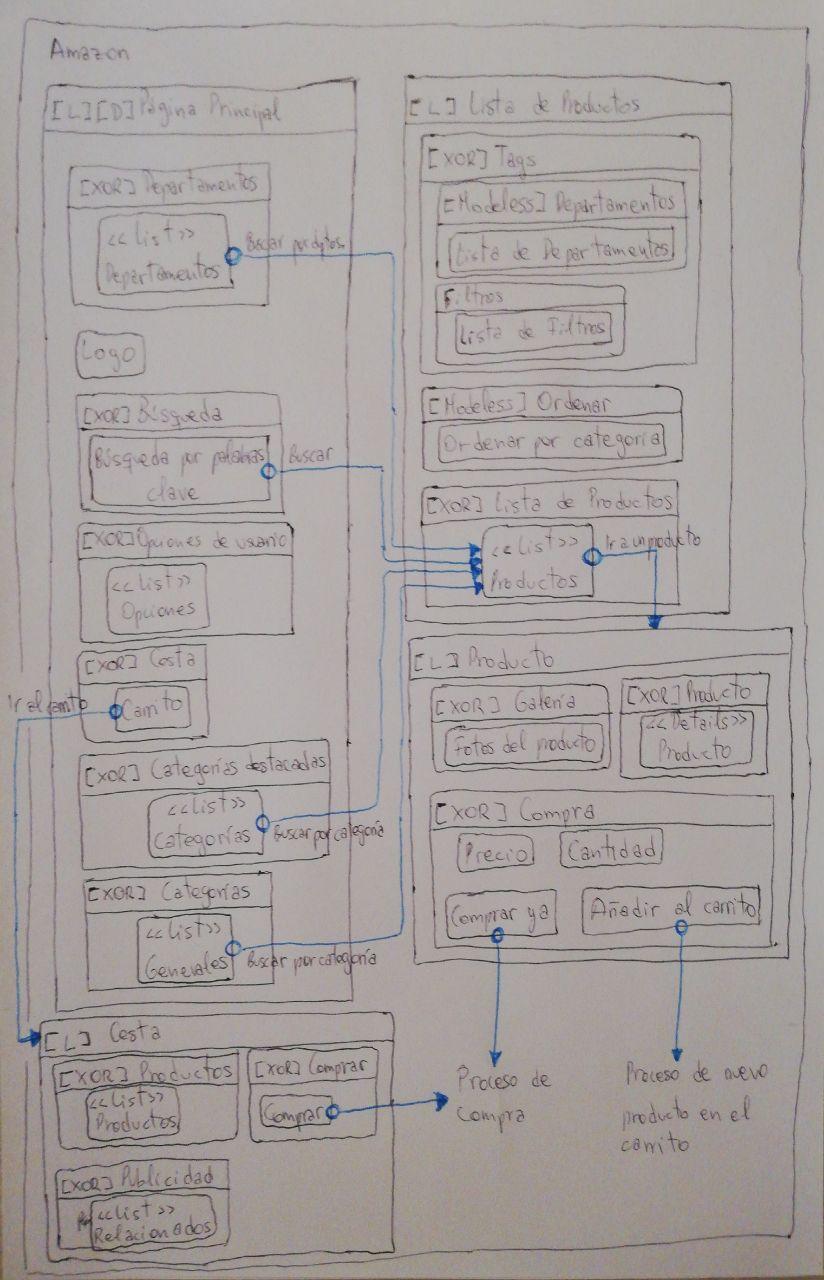 Amazon
[L][D] Página Principal
[XOR] Departamentos
<<List>>
Departamentos
Buscar por dptos.
Logo
[XOR] Búsqueda
Búsqueda por palabras
clave
Buscar
[XOR] Opciones de usuario
<<List>>
Opciones
[XOR] Cesta
Carrito
Ir al carrito
[XOR] Categorías destacadas
<<List>>
Categorías
Buscar por categoría
[XOR] Categorías
<<List>>
Generales
Buscar por categoría
[L] Lista de Productos
[XOR] Tags
[Modeless] Departamentos
Lista de Departamentos
Filtros
Lista de Filtros
[Modeless] Ordenar
Ordenar por categoría
[XOR] Lista de Productos
<<List>>
Productos
Ir a un producto
[L] Producto
[XOR] Galería
Fotos del producto
[XOR] Producto
<<Details>>
Producto
[XOR] Compra
Precio
Cantidad
Comprar ya
Añadir al carrito
[L] Cesta
[XOR] Productos
<<List>>
Productos
[XOR] Comprar
Comprar
[XOR] Publicidad
<<List>>
Relacionados
Proceso de
compra
Proceso de nuevo
producto en el
carrito